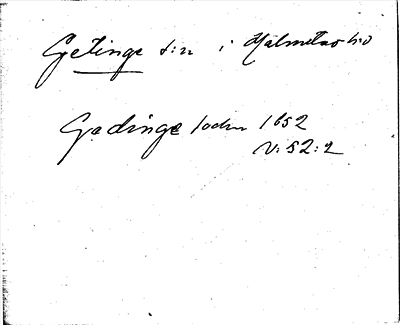 Getinge s:n i Halmstads hd
Gedinge sochn 1652
N: 52:2